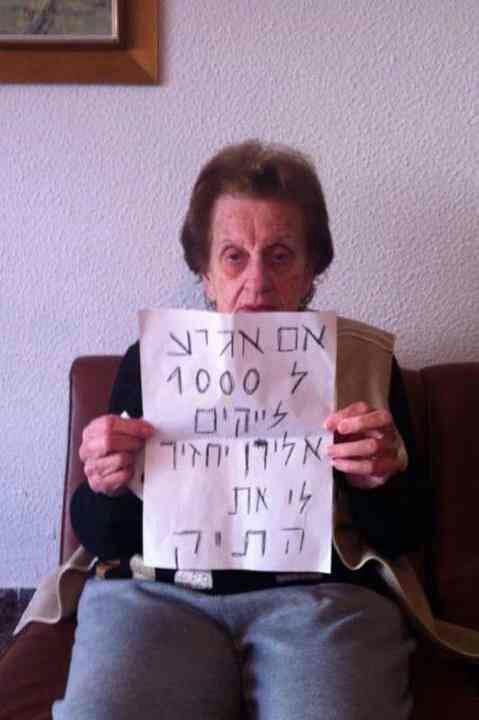 אם אגיע
ל 1000
לייקים
אלירן יחזיר
לי את
התיק